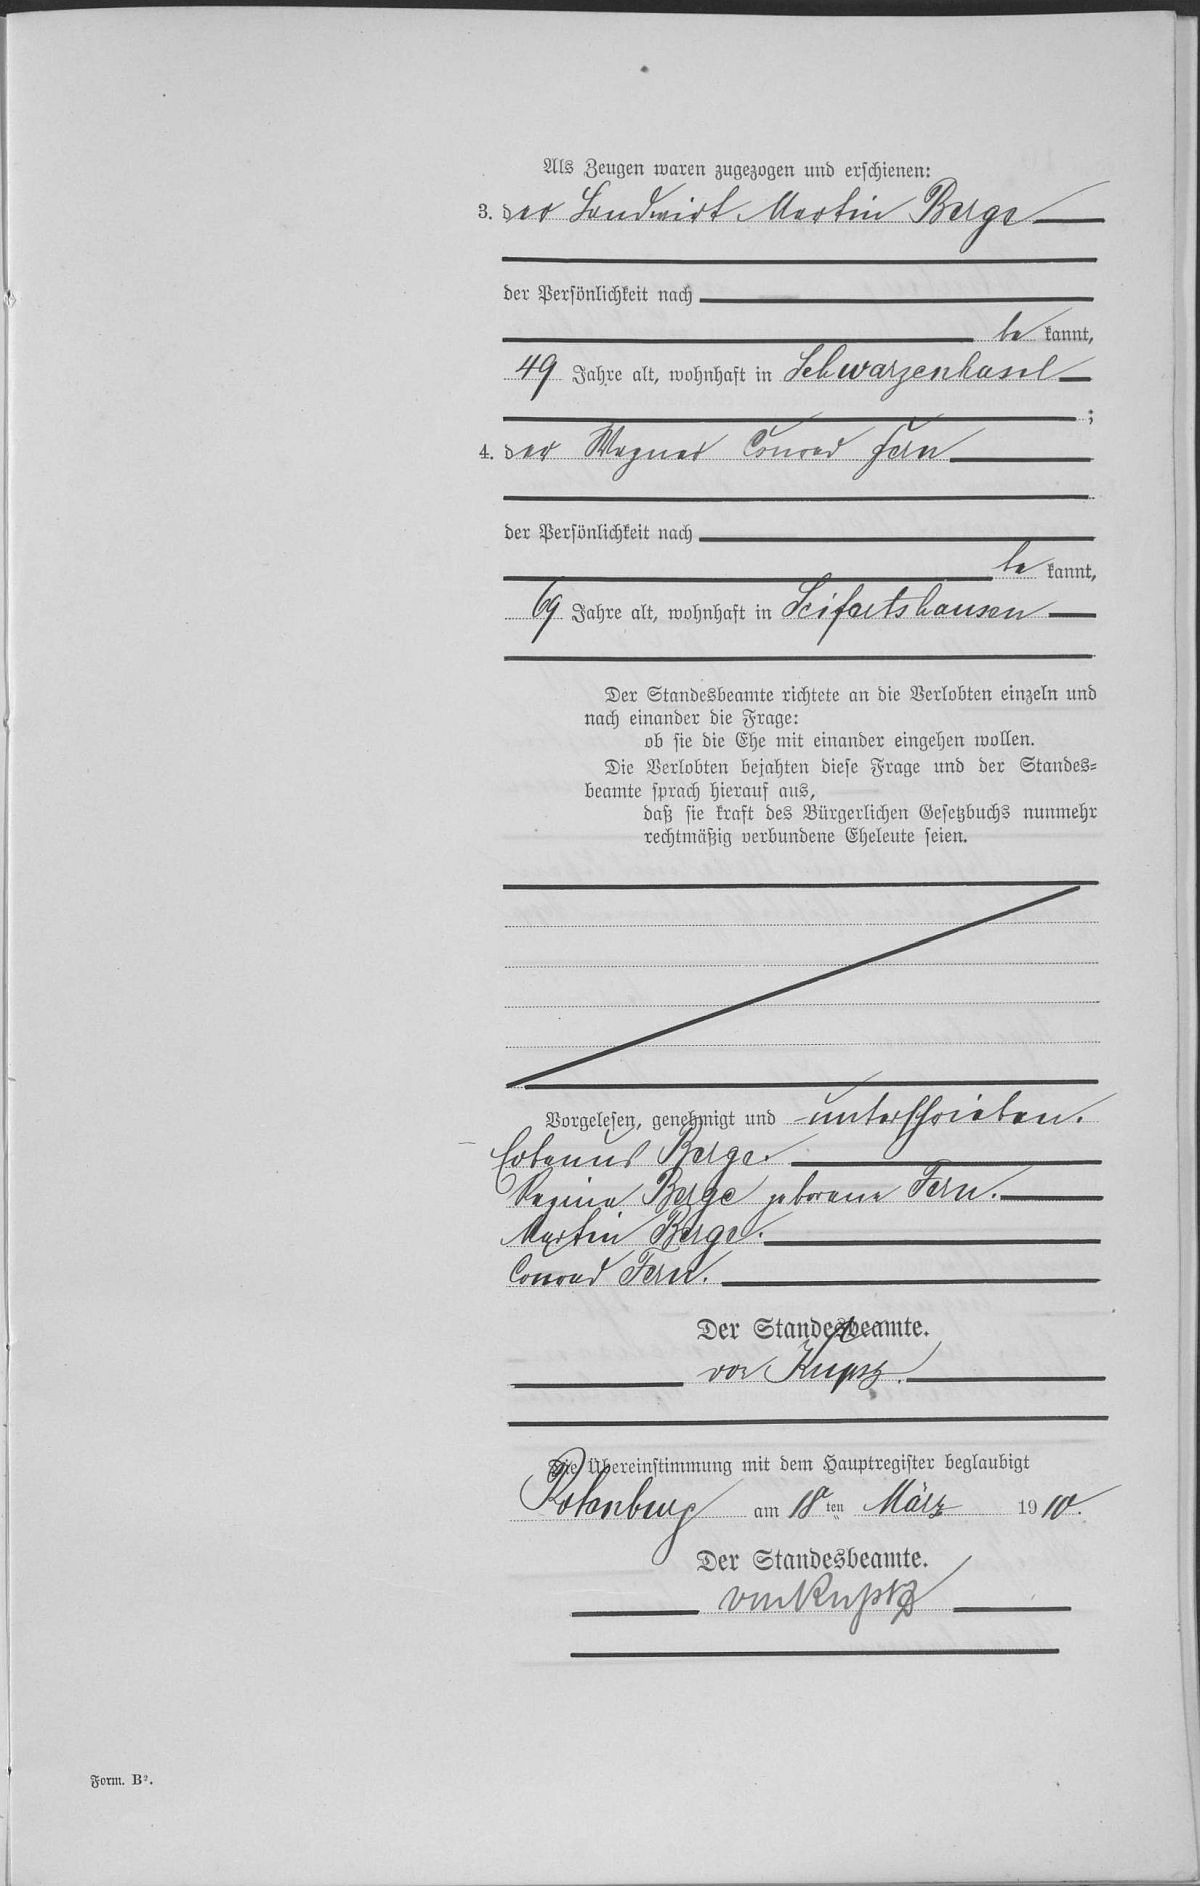 Als Zeugen waren zugezogen und erschienen:
3. der Landwirt Martin Berge
der Persönlichkeit nach
be kannt,
49 Jahre alt, wohnhaft in Schwarzenhasel
;
4. der Wagner Conrad Fern
der Persönlichkeit nach
be kannt,
69 Jahre alt, wohnhaft in Seifertshausen
Der Standesbeamte richtete an die Verlobten einzeln und
nach einander die Frage:
ob sie die Ehe mit einander eingehen wollen.
Die Verlobten bejahten diese Frage und der Standes=
beamte sprach hierauf aus,
daß sie kraft des Bürgerlichen Gesetzbuchs nunmehr
rechtmäßig verbundene Eheleute seien.
Vorgelesen, genehmigt und unterschrieben.
Berge.
Regina Berge geborene Fern.
Martin Berge.
Conrad Fern.
Der Standesbeamte.
Die Übereinstimmung mit dem Hauptregister beglaubigt
Rotenburg am 18 ten März 1910.
Der Standesbeamte.
Form. B².